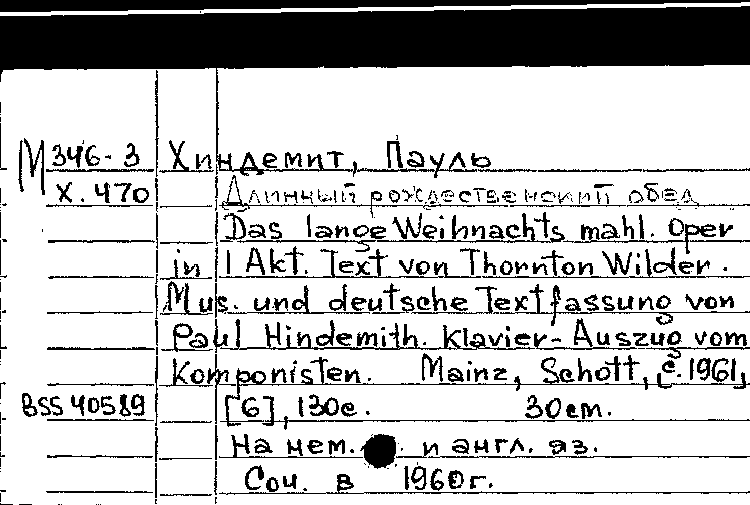 М 346-3 Хиндемит, Пауль
Х. 470 Длинный рождественский обед
Das lange Weihnachts mahl. Oper
in 1 Akt. Text von Thornton Wilder.
Mus. und deutsche Textfassung von
Paul Hindemith. Klavier-Auszug vom
Komponisten. Mainz, Schott, [c. 1961]
BSS 40589 [6], 130 с. 30 см.
На нем. и англ. яз.
Соч. в 1960 г.